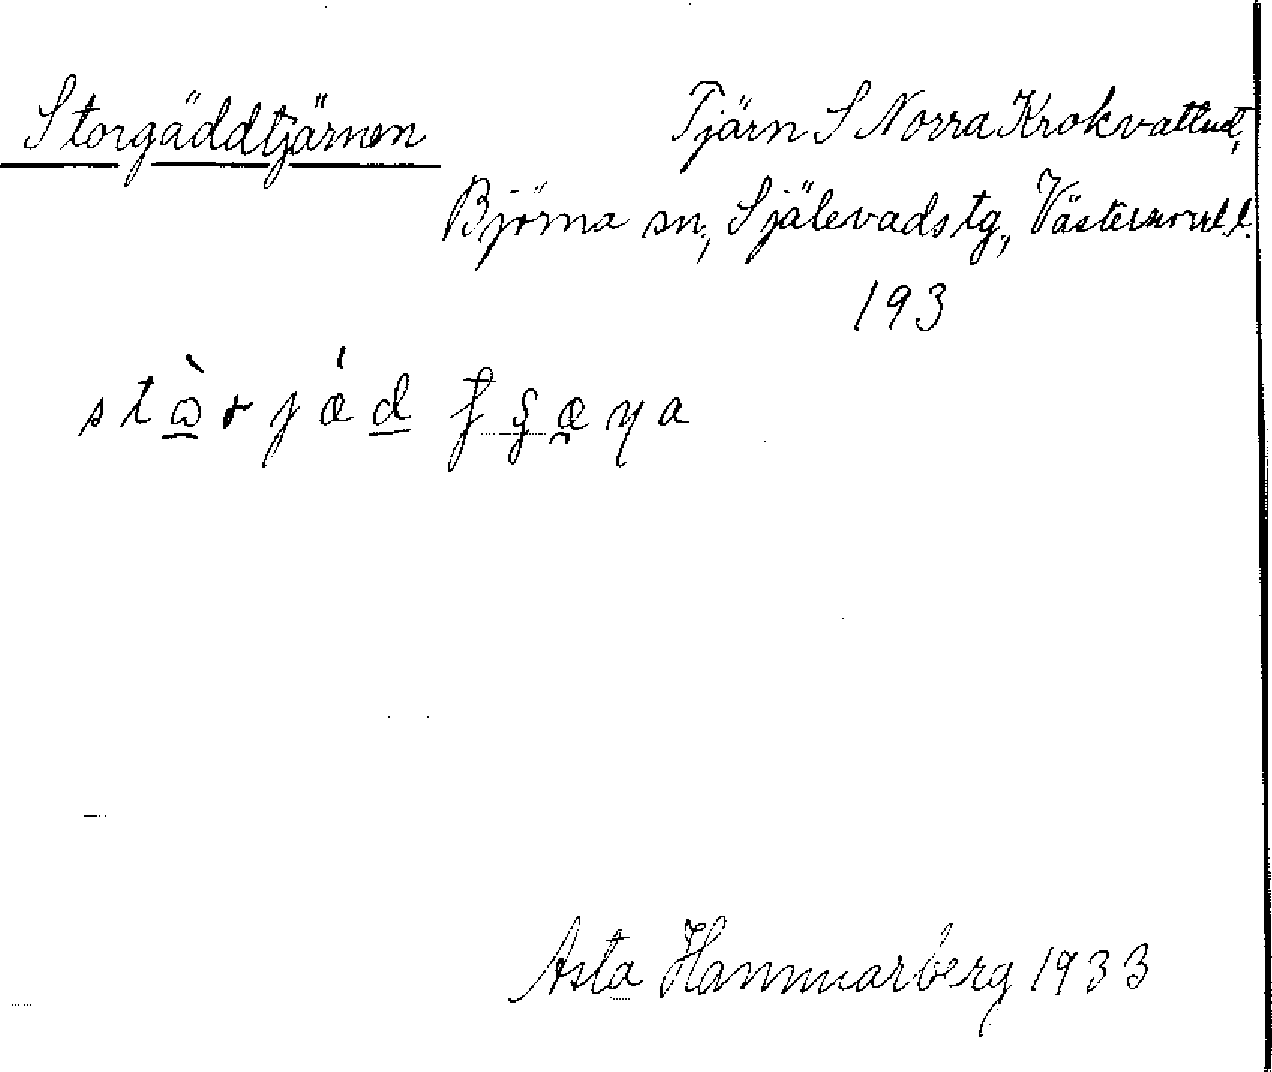 Storgäddtjärnen
Tjärn S Norra Krokvattnet,
Björna sn, Själevads tg., Västernorrl. l.
193
Asta Hammarberg 1933